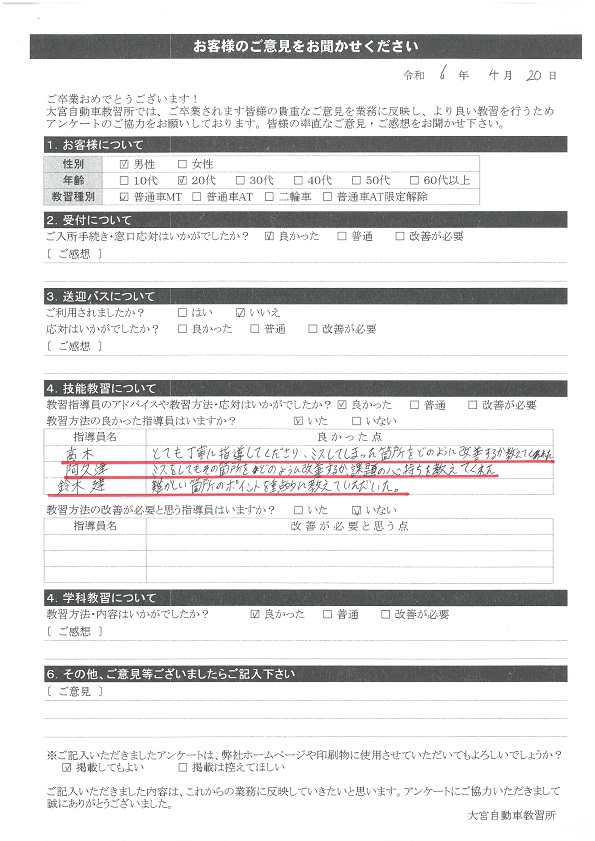 お客様のご意見をお聞かせください
令和 6 年 4 月 20 日
ご卒業おめでとうございます！
大宮自動車教習所では、ご卒業されます皆様の貴重なご意見を業務に反映し、より良い教習を行うため
アンケートのご協力をお願いしております。皆様の率直なご意見・ご感想をお聞かせ下さい。
1．お客様について
性別 ☑ 男性 □ 女性
年齢 □ 10代 ☑ 20代 □ 30代 □ 40代 □ 50代 □ 60代以上
教習種別 ☑ 普通車MT □ 普通車AT □ 二輪車 □ 普通車AT限定解除
2．受付について
ご入所手続き・窓口応対はいかがでしたか？ ☑ 良かった □ 普通 □ 改善が必要
［ ご感想 ］
3．送迎バスについて
ご利用されましたか？ □ はい ☑ いいえ
応対はいかがでしたか？ □ 良かった □ 普通 □ 改善が必要
［ ご感想 ］
4．技能教習について
教習指導員のアドバイスや教習方法・応対はいかがでしたか？ ☑ 良かった □ 普通 □ 改善が必要
教習方法の良かった指導員はいますか？ ☑ いた □ いない
指導員名 良かった点
高木 とても丁寧に指導してくださり、ミスしてしまった箇所をどのように改善するか教えてくれた
阿久津 ミスをしてもその箇所をどのように改善するか課題の心持ちを教えてくれた
鈴木 建 難しい箇所のポイントを重点的に教えていただいた。
教習方法の改善が必要と思う指導員はいますか？ □ いた ☑ いない
指導員名 改善が必要と思う点
4．学科教習について
教習方法・内容はいかがでしたか？ ☑ 良かった □ 普通 □ 改善が必要
［ ご感想 ］
6．その他、ご意見等ございましたらご記入下さい
［ ご意見 ］
※ご記入いただきましたアンケートは、弊社ホームページや印刷物に使用させていただいてもよろしいでしょうか？
☑ 掲載してもよい □ 掲載は控えてほしい
ご記入いただきました内容は、これからの業務に反映していきたいと思います。アンケートにご協力いただきまして
誠にありがとうございました。
大宮自動車教習所